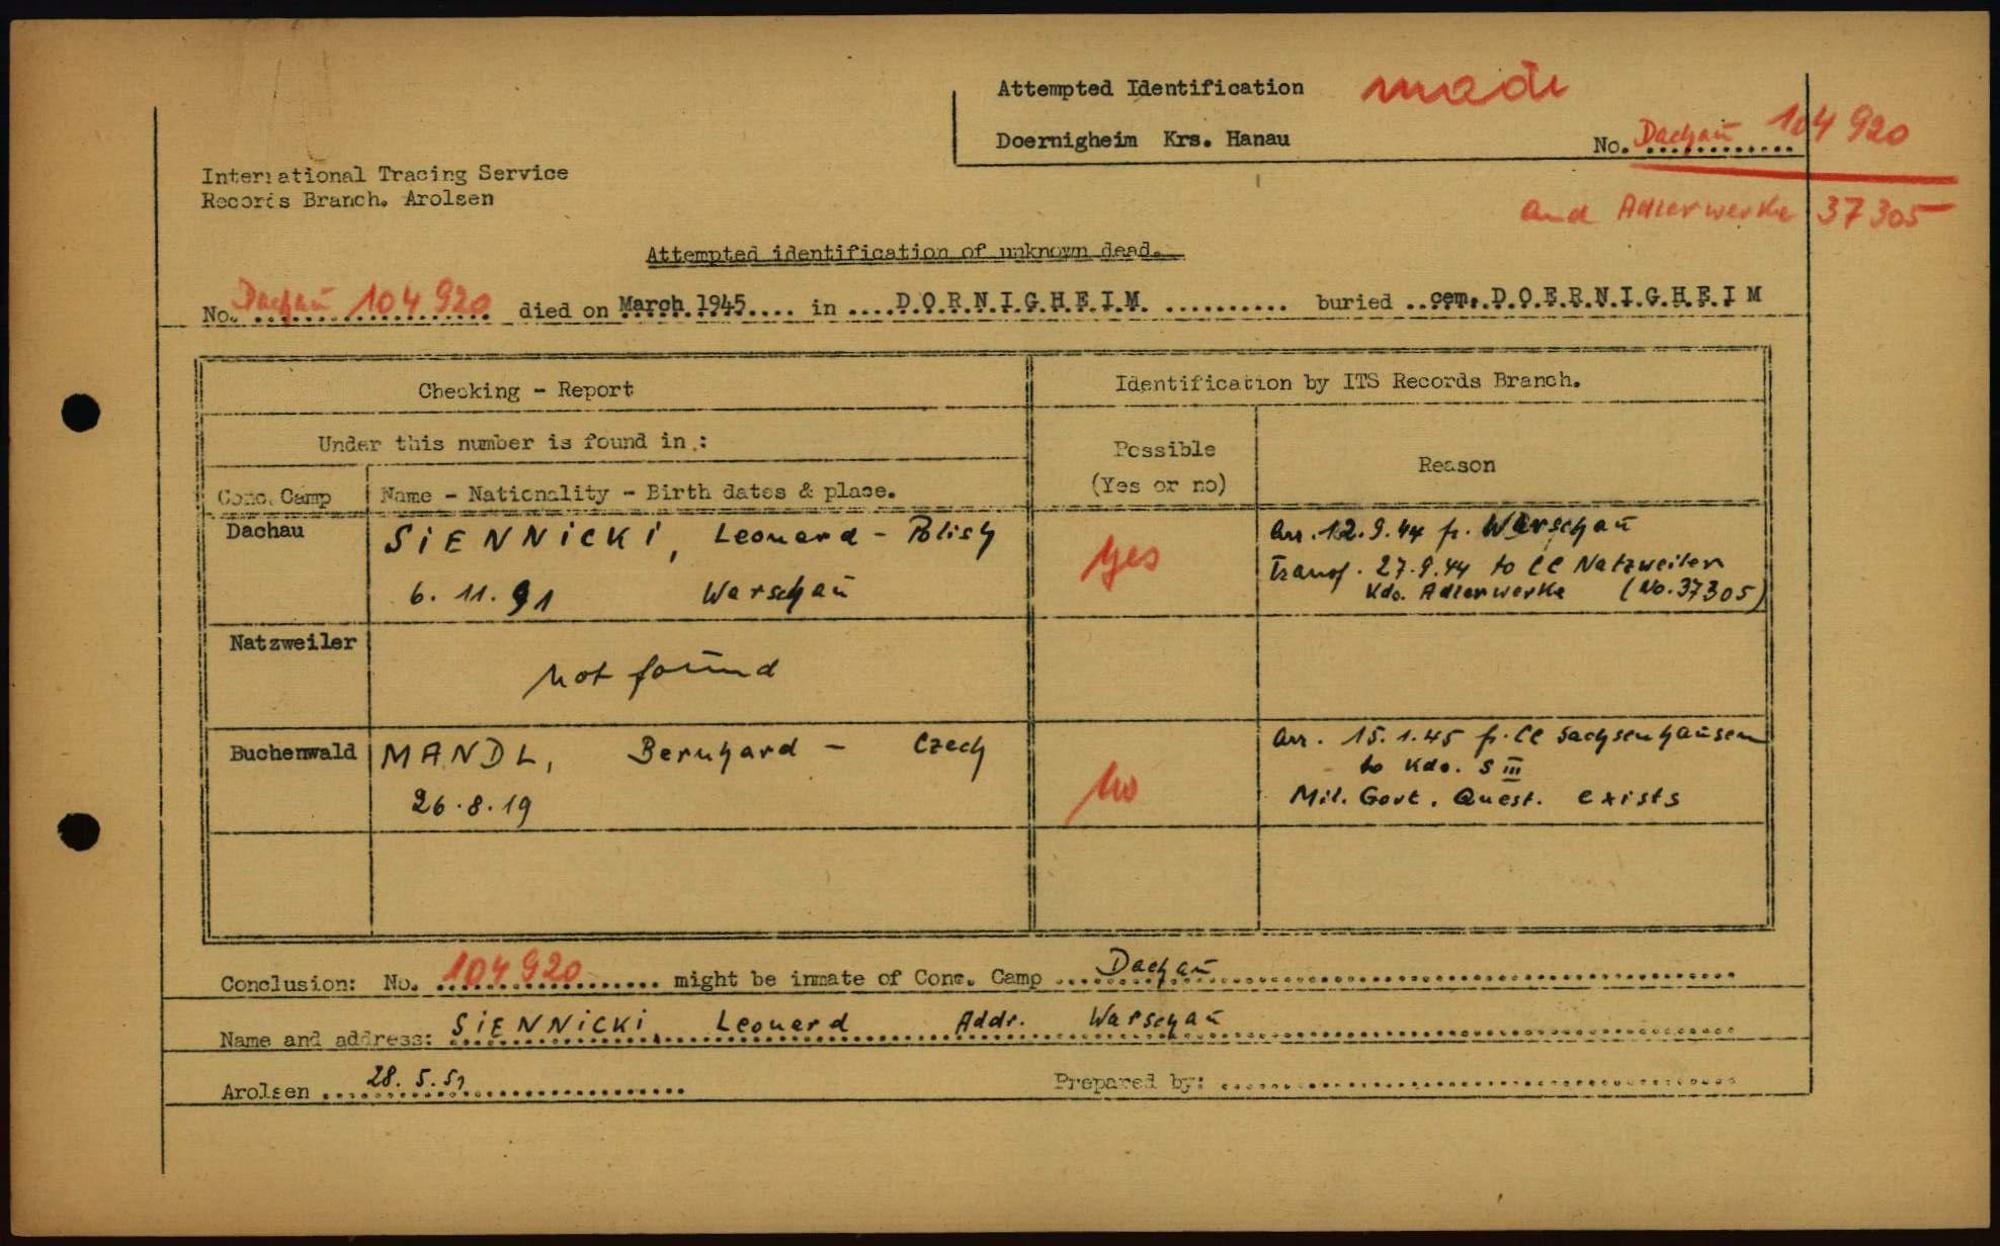 Attempted Identification made
Doernigheim Krs. Hanau
No. Dachau 104 920
and Adlerwerke 37305
International Tracing Service
Records Branch. Arolsen
Attempted identification of unknown dead.
No. Dachau 104 920 died on March 1945.... in ....D.O.R.N.I.G.H.E.I.M. .......... buried ..cem. D.O.E.R.N.I.G.H.E.I M
Checking - Report
Identification by ITS Records Branch.
Under this number is found in :
Possible
(Yes or no)
Reason
Conc. Camp
Name - Nationality - Birth dates & place.
Dachau
SIENNICKI, Leonard - Polish
6. 11. 91 Warschau
yes
Arr. 12.9.44 fr. Warschau
Transf. 27.9.44 to CC Natzweiler
Kdo. Adlerwerke (No. 37305)
Natzweiler
not found
Buchenwald
MANDL, Bernhard - Czech
26.8.19
No
Arr. 15.1.45 fr. CC Sachsenhausen
to Kdo. S III
Mil. Govt. Quest. exists
Conclusion: No. 104 920 might be inmate of Conc. Camp Dachau
Name and address: SIENNICKI, Leonard Addr. Warschau
Arolsen 28. 5. 51
Prepared by: